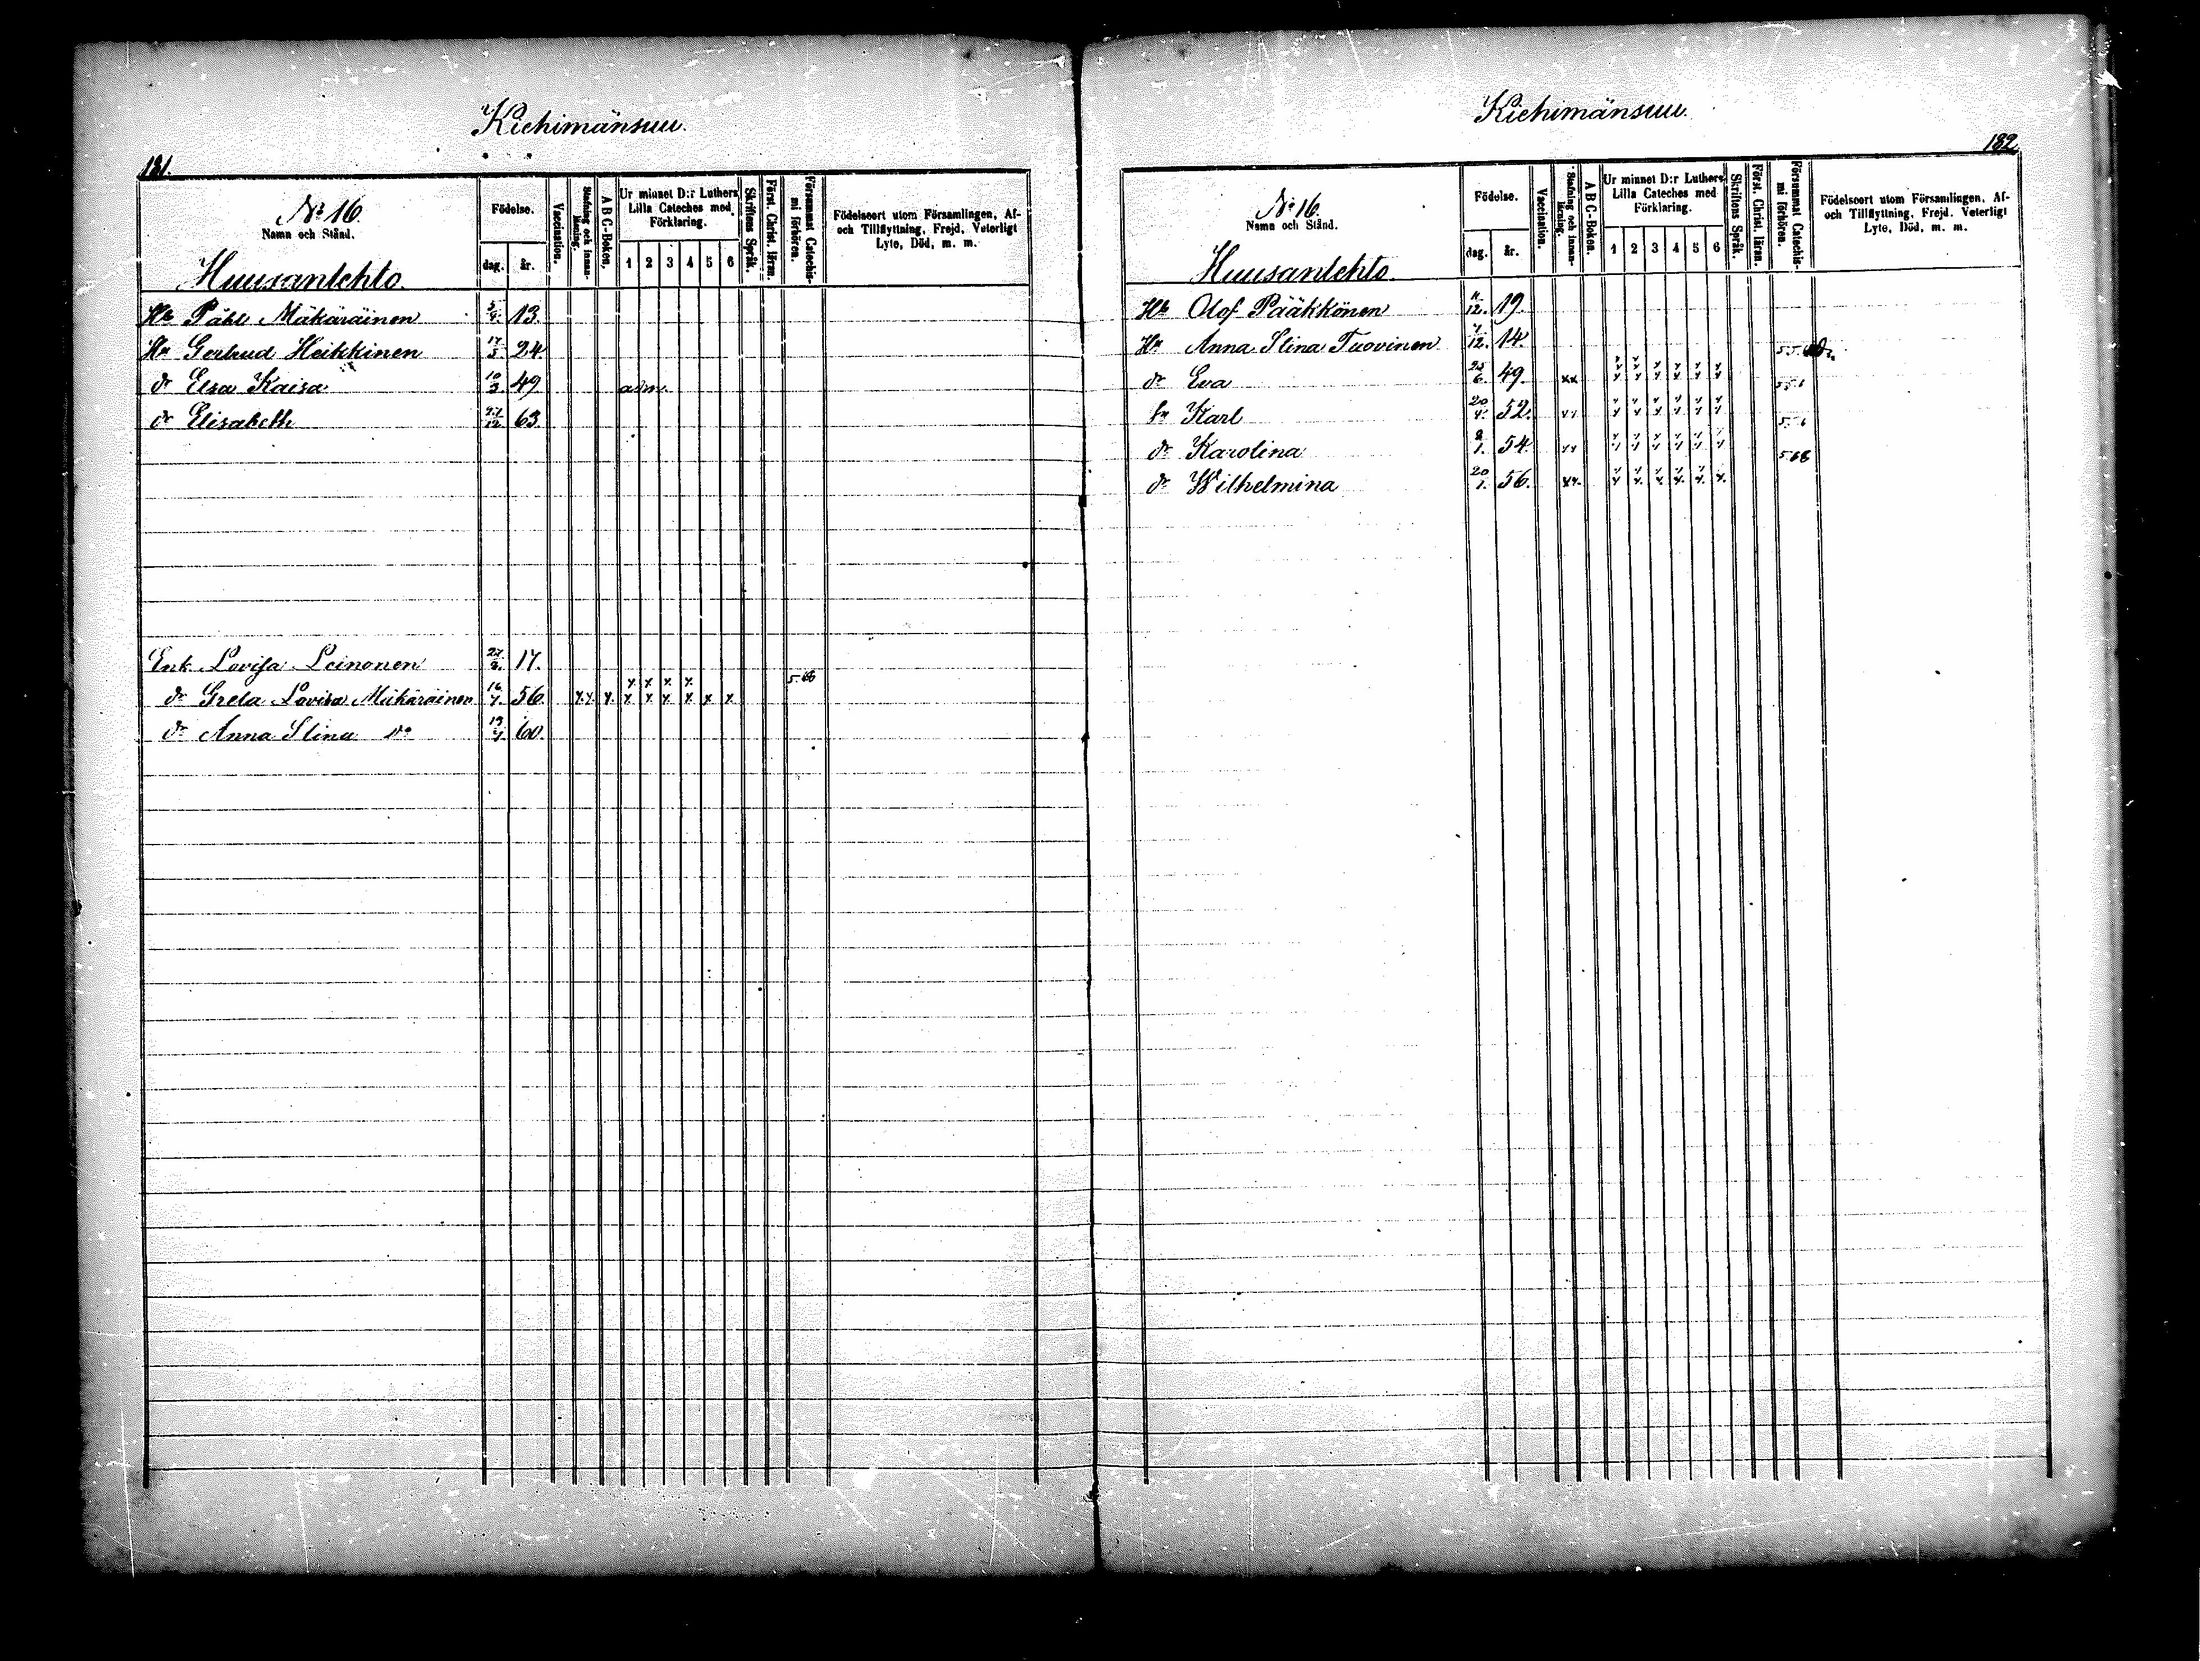 Kiehimänsuu.
181.
No 16.
Namn och Stånd.
Huusanlehto.
Födelse.
dag. år.
Vaccination.
Stafning och innanläsning.
A B C-Boken.
Ur minnet D:r Luthers Lilla Cateches med Förklaring.
1 2 3 4 5 6
Skriftens Språk.
Först. Christ. lären.
Försummat Catechismi förhören.
Födelseort utom Församlingen, Af- och Tillflyttning, Frejd, Veterligt Lyte, Död, m. m.
Påhl Mäkäräinen 13.
Gertrud Heikkinen 24
dr Elsa Kaisa 10/3 49
dr Elisabeth 63
Enk. Lovisa Leinonen 17.
dr Greta Lovisa Mäkäräinen 56. x x x x x x x x x
x x x x
dr Anna Stina do 60.
Kiehimänsuu.
182.
No 16.
Namn och Stånd.
Huusanlehto.
Födelse.
dag. år.
Vaccination.
Stafning och innanläsning.
A B C-Boken.
Ur minnet D:r Luthers Lilla Cateches med Förklaring.
1 2 3 4 5 6
Skriftens Språk.
Först. Christ. lären.
Försummat Catechismi förhören.
Födelseort utom Församlingen, Af- och Tillflyttning, Frejd, Veterligt Lyte, Död, m. m.
Olof Pääkkönen 11/12. 19.
Anna Stina Tuovinen 14.
dr Eva 49.
Karl 52.
dr Karolina 54.
dr Wilhelmina 20/1. 56.